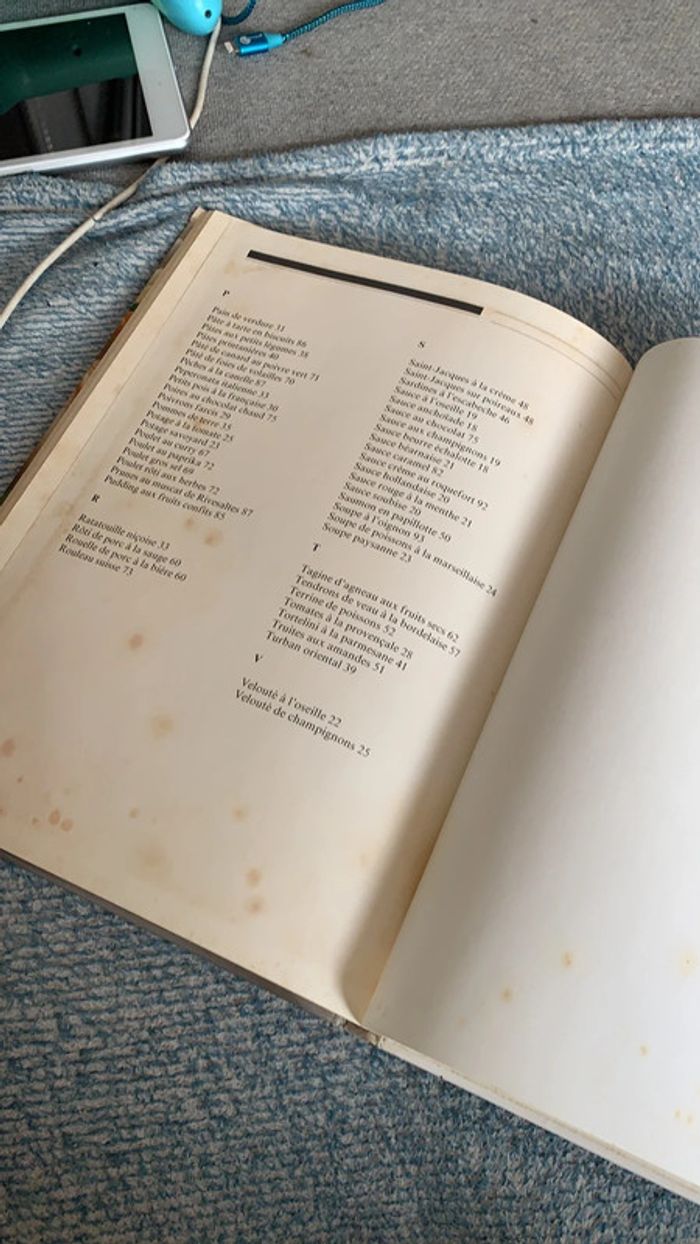 P
Pain de verdure 31
Pâte à tarte en biscuits 86
Pâtes aux petits légumes 38
Pâtes printanières 40
Pâté de canard au poivre vert 71
Pâté de foies de volailles 70
Pêches à la canelle 87
Peperonata italienne 33
Petits pois à la française 30
Poires au chocolat chaud 75
Poivrons farcis 29
Pommes de terre 35
Potage à la tomate 25
Potage savoyard 23
Poulet au curry 67
Poulet au paprika 72
Poulet gros sel 69
Poulet rôti aux herbes 72
Prunes au muscat de Rivesaltes 87
Pudding aux fruits confits 85
R
Ratatouille niçoise 33
Rôti de porc à la sauge 60
Rouelle de porc à la bière 60
Rouleau suisse 73
S
Saint-Jacques à la crème 48
Saint-Jacques sur poireaux 48
Sardines à l'escabèche 46
Sauce à l'oseille 19
Sauce anchoïade 18
Sauce au chocolat 75
Sauce aux champignons 19
Sauce béarnaise 21
Sauce beurre échalotte 18
Sauce caramel 82
Sauce crème au roquefort 92
Sauce hollandaise 20
Sauce rouge à la menthe 21
Sauce soubise 20
Saumon en papillotte 50
Soupe à l'oignon 93
Soupe de poissons à la marseillaise 24
Soupe paysanne 23
T
Tagine d'agneau aux fruits secs 62
Tendrons de veau à la bordelaise 57
Terrine de poissons 52
Tomates à la provençale 28
Tortelini à la parmesane 41
Truites aux amandes 51
Turban oriental 39
V
Velouté à l'oseille 22
Velouté de champignons 25